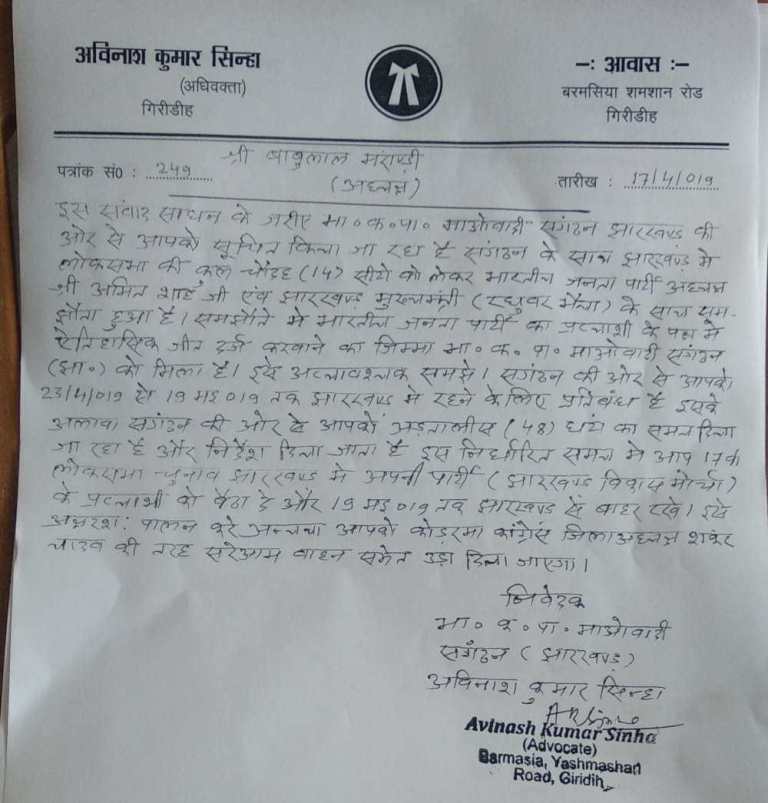 अविनाश कुमार सिन्हा
(अधिवक्ता)
गिरीडीह
–: आवास :–
बरमसिया शमशान रोड
गिरीडीह
पत्रांक सं० : 249
श्री बाबुलाल मरांण्डी
(अध्यक्ष)
तारीख : 17/4/019
इस संवाद साधन के जरीए भा०क०पा० माओवादी संगठन झारखण्ड की
ओर से आपको सूचित किया जा रहा है संगठन के साथ झारखण्ड मे
लोकसभा की कुल चौदह (14) सीटो को लेकर भारतीय जनता पार्टी अध्यक्ष
श्री अमित शाह जी एंव झारखण्ड मुख्यमंत्री (रघुवर भैया) के साथ सम-
झौता हुआ है। समझौते मे भारतीय जनता पार्टी का प्रत्याशी के पक्ष मे
ऐतिहासिक जीत दर्ज करवाने का जिम्मा भा० क० पा० माओवादी संगठन
(झा०) को मिला है। इसे अत्यावश्यक समझे। संगठन की ओर से आपको
23/4/019 से 19 मई 019 तक झारखण्ड मे रहने के लिए प्रतिबंध है इसके
अलावा संगठन की ओर से आपको अड़तालीस (48) घंटा का समय दिया
जा रहा है और निर्देश दिया जाता है इस निर्धारित समय मे आप 17वी
लोकसभा चुनाव झारखण्ड मे अपनी पार्टी (झारखण्ड विकास मोर्चा)
के प्रत्याशी को बैठा दे और 19 मई 019 तक झारखण्ड से बाहर रखे। इसे
अक्षरश: पालन करे अन्यथा आपको कोडरमा कांग्रेस जिला अध्यक्ष शंकर
यादव की तरह सरेआम वाहन समेत उड़ा दिया जाएगा।
निवेदक
भा० क० पा० माओवादी
संगठन (झारखण्ड)
अविनाश कुमार सिन्हा
Avinash Kumar Sinha
(Advocate)
Barmasia, Yashmashan
Road, Giridih